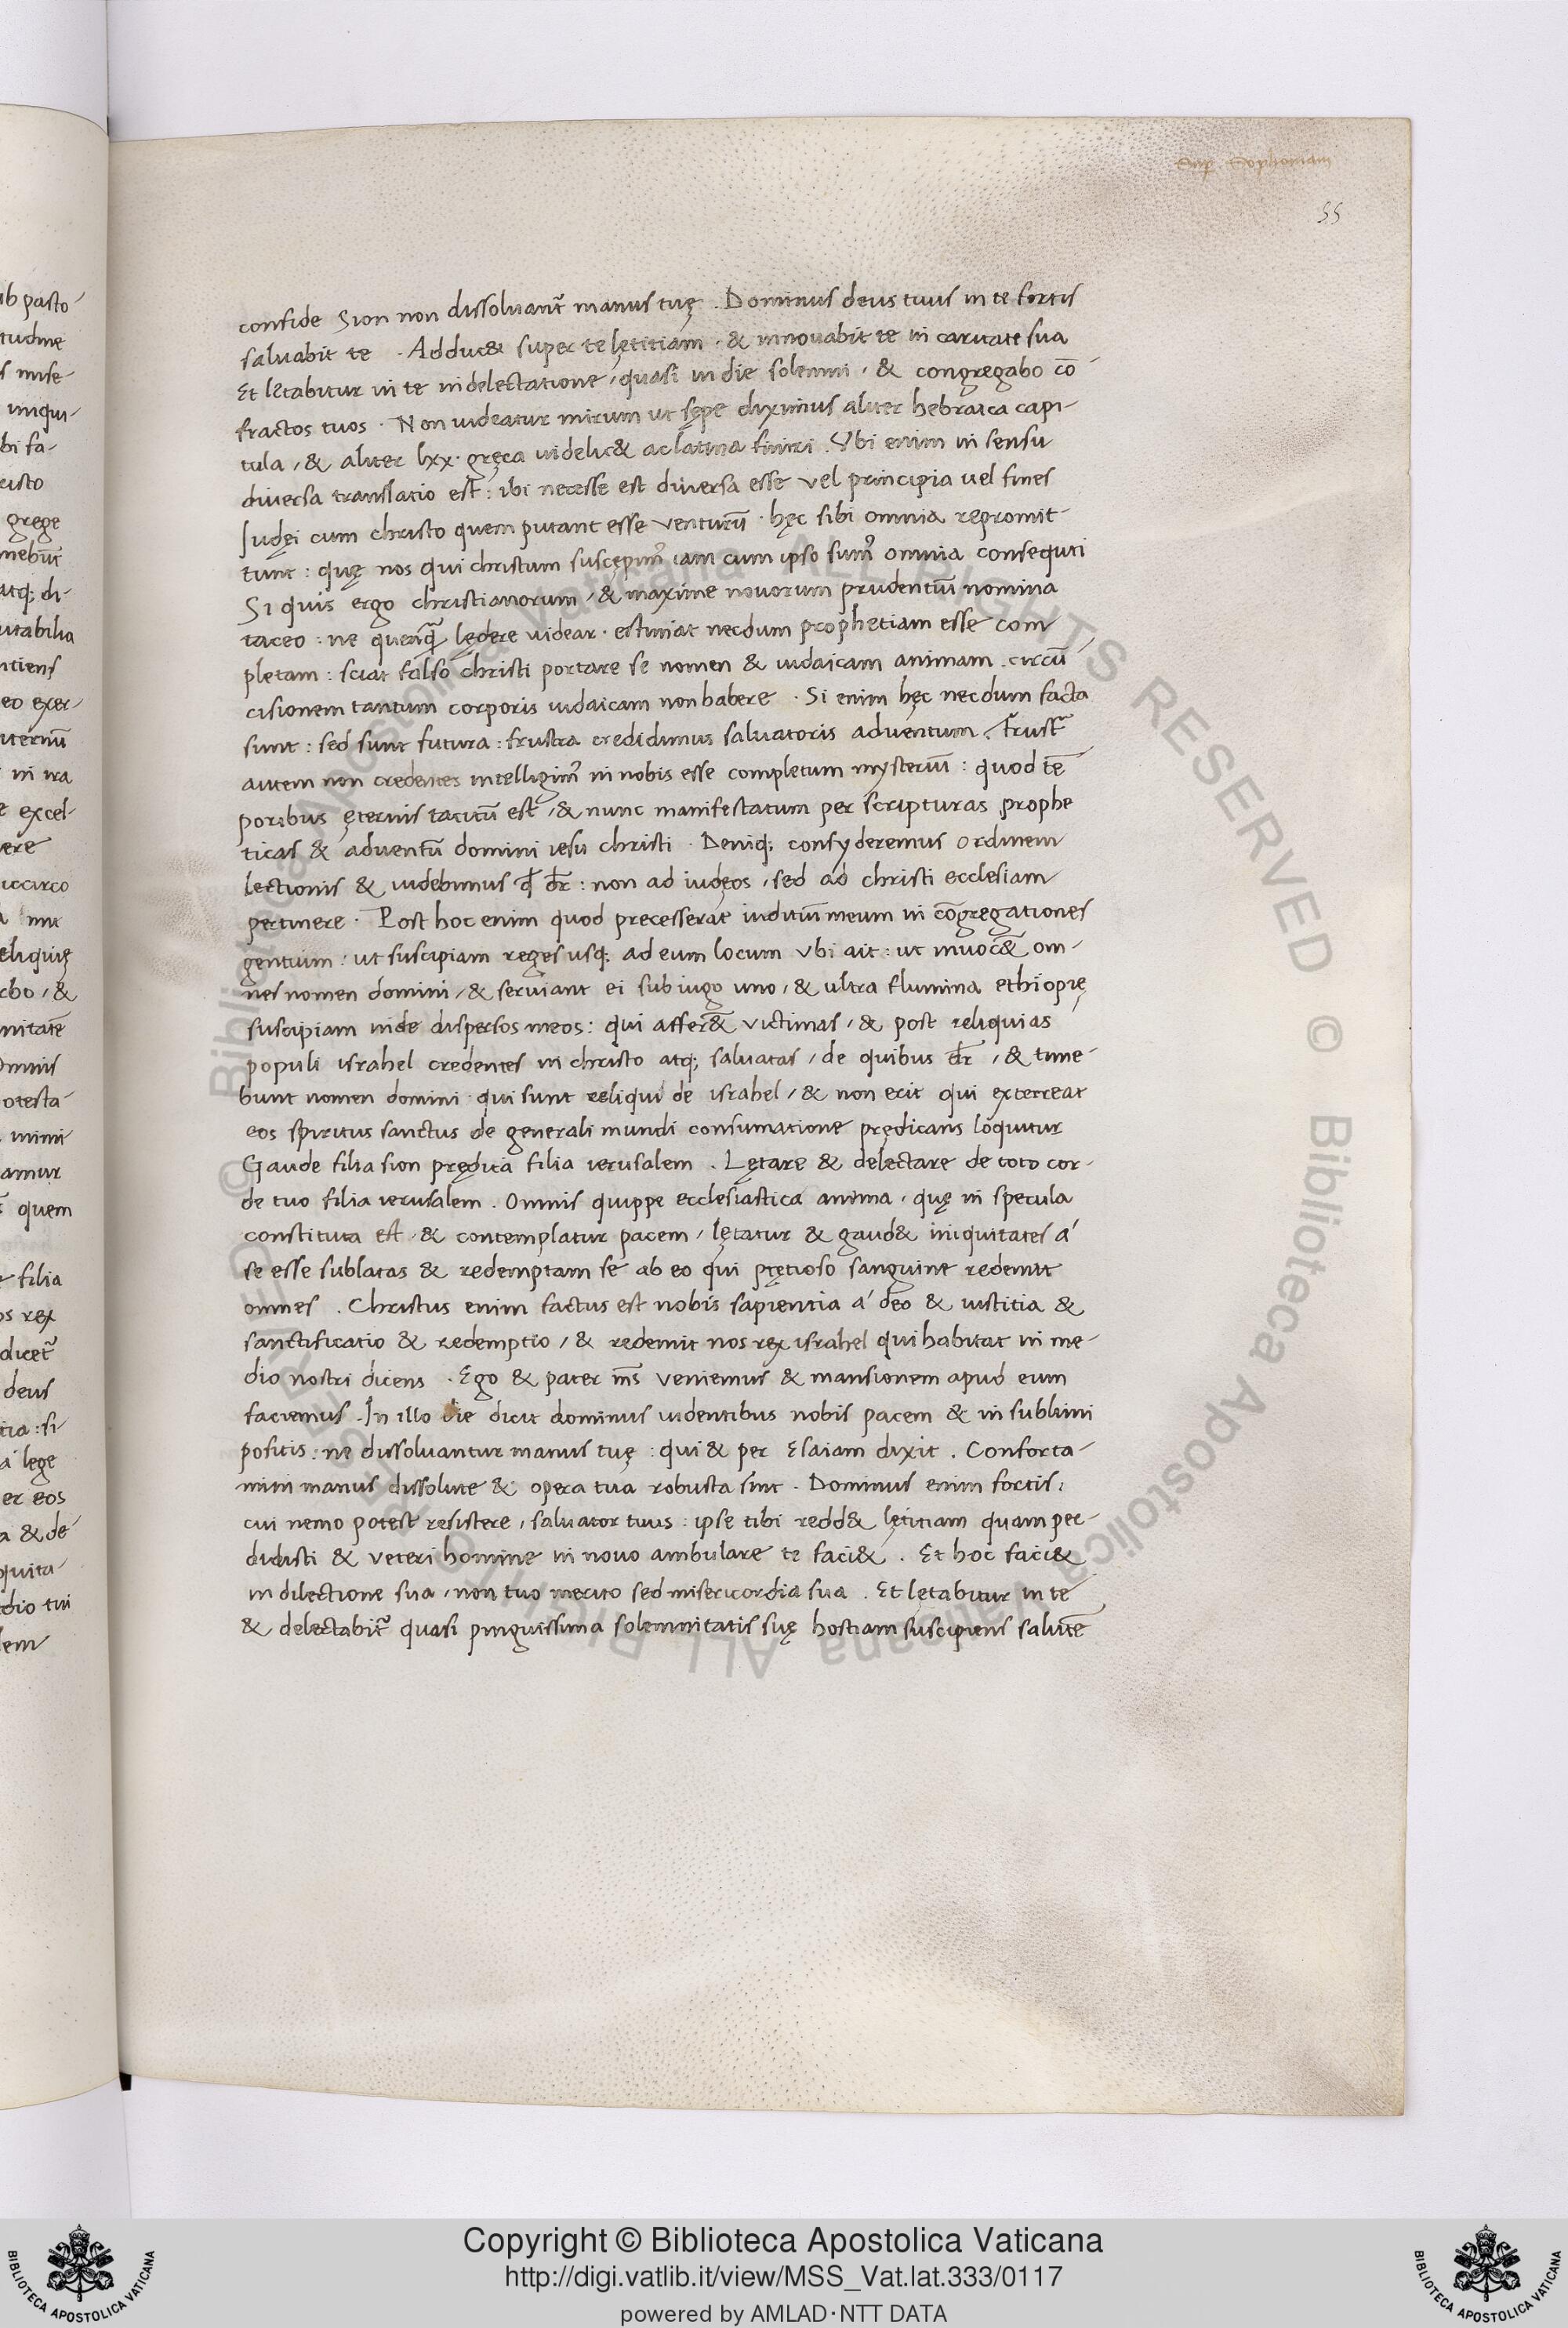 Sup Sophoniam
55
confide Sion non dissoluant᷑ manus tuę . Dominus deus tuus in te fortis
saluabit te . Adducet super te lętitiam . & innouabit te in caritate sua
Et lętabitur in te in delectatione, quasi in die solenni, & congregabo cō-
fractos tuos . Non uideatur mirum ut sępe diximus aliter hebraica capi-
tula, & aliter lxx. gręca uidelic& ac latina finiri . Vbi enim in sensu
diuersa translatio est : ibi necesse est diuersa esse vel principia uel fines
Iudęi cum christo quem putant esse venturū . hęc sibi omnia repromit-
tunt : quę nos qui christum suscępim᷒ iam cum ipso sum᷒ omnia consequti
Si quis ergo christianorum, & maxime nouorum prudentiū nomina
taceo : ne quenq̃ lędere videar . estimat necdum prophetiam esse com
pletam : sciat falso christi portare se nomen & iudaicam animam . circū-
cisionem tantum corporis iudaicam non habere . Si enim hęc necdum facta
sunt : sed sunt futura : frustra credidimus saluatoris aduentum . Frust᷑
autem non credentes intelligim᷒ in nobis esse completum mysteriū : quod tē-
poribus ęternis tacitū est, & nunc manifestatum per scripturas prophe
ticas & aduentū domini iesu christi . Deniq; consyderemus ordinem
lectionis & uidebimus q̄ dr̄ : non ad iudęos, sed ad christi ecclesiam
pertinere . Post hoc enim quod precesserat iuditiū meum in cōgregationes
gentium : ut suscipiam reges usq; ad eum locum vbi ait : ut inuoc&̄ om-
nes nomen domini, & seruiant ei sub iugo uno, & ultra flumina ethiopię
suscipiam inde dispersos meos : qui affer&̄ victimas, & post reliquias
populi israhel credentes in christo atq; saluatas, de quibus dr̄, & time-
bunt nomen domini qui sunt reliqui de israhel, & non erit qui exterreat
eos spiritus sanctus de generali mundi consumatione prędicans loquitur
Gaude filia sion prędica filia ierusalem . Lętare & delectare de toto cor-
de tuo filia ierusalem . Omnis quippe ecclesiastica anima, quę in specula
constituta est, & contemplatur pacem, lętatur & gaud& iniquitates á
se esse sublatas & redemptam se ab eo qui pretioso sanguine redemit
omnes . Christus enim factus est nobis sapientia á deo & iustitia &
sanctificatio & redemptio, & redemit nos rex israhel qui habitat in me-
dio nostri dicens . Ego & pater m̄s veniemus & mansionem apud eum
faciemus . In illo die dicit dominus uidentibus nobis pacem & in sublimi
positis : ne dissoluantur manus tuę : qui & per Esaiam dixit . Conforta-
mini manus dissolute & opera tua robusta sint . Dominus enim fortis,
cui nemo potest resistere, saluator tuus : ipse tibi redd& lętitiam quam per-
didisti & veteri homine in nouo ambulare te faci& . Et hoc faci&
in dilectione sua, non tuo merito sed misericordia sua . Et lętabitur in te
& delectabit᷑ quasi pinguissima solemnitatis suę hostiam suscipiens salutē
© Biblioteca Apostolica Vaticana ALL RIGHTS RESERVED © Biblioteca Apostolica Vaticana
BIBLIOTECA APOSTOLICA VATICANA
Copyright © Biblioteca Apostolica Vaticana
http://digi.vatlib.it/view/MSS_Vat.lat.333/0117
powered by AMLAD·NTT DATA
BIBLIOTECA APOSTOLICA VATICANA